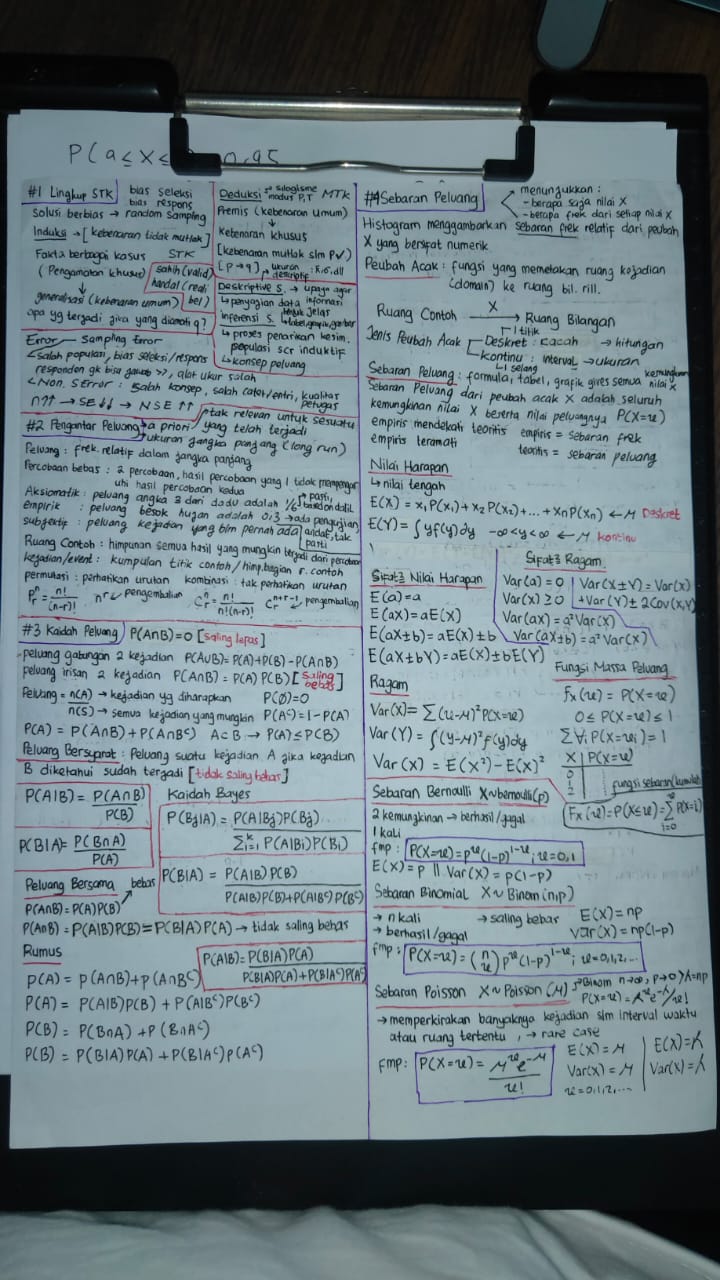 P(a ≤ X ≤
#1 Lingkup STK
bias seleksi
bias respons
Solusi berbias → random sampling
Induksi → [kebenaran tidak mutlak]
Fakta berbagai kasus STK
(Pengamatan khusus)
sahih (valid)
handal (reli
bel)
↓
generalisasi (kebenaran umum)
apa yg terjadi jiwa yang diamati?
Deduksi → silogisme MTK
modus P, T
Premis (kebenaran umum)
↓
Ketenaran khusus
[kebenaran mutlak slm P✓]
[P → q]
ukuran
deskriptif
Deskriptive S. → upaya agar
↳ penyajian data informasi
jelas
inferensi S. ↳ tabel, grafik, gambar
↳ proses penarikan kesim.
populasi scr induktif
↳ konsep peluang
Error — Sampling Error
< Salah populasi, bias seleksi/respons
responden gk bisa >>, alat ukur salah
< Non. S Error: Salah konsep, salah catat/entri, kualitas
petugas
n↑↑ → SE↓↓ → NSE↑↑
#2 Pengantar Peluang
tak relevan untuk sesuatu
a priori yang telah terjadi
ukuran jangka panjang (long run)
Peluang: frek. relatif dalam jangka panjang
Percobaan bebas: 2 percobaan, hasil percobaan yang 1 tidak mempengar
uhi hasil percobaan kedua
Aksiomatik: peluang angka 3 dari dadu adalah 1/6 → pasti,
based on dalil
empirik: peluang besok hujan adalah 0,3 → ada pengujian
subjektif: peluang kejadian yang blm pernah ada
Ruang Contoh: himpunan semua hasil yang mungkin terjadi dari percobaan
kejadian/event: kumpulan titik contoh / himp. bagian r. contoh
permutasi: perhatikan urutan kombinasi: tak perhatikan urutan
Pʳⁿ = n!/(n-r)! nʳ → pengembalian Cʳⁿ = n!/n!(n-r)! Cʳⁿ⁺ʳ⁻¹ → pengembalian
#3 Kaidah Peluang P(A∩B)=0 [saling lepas]
peluang gabungan 2 kejadian P(A∪B)=P(A)+P(B)-P(A∩B)
Peluang irisan 2 kejadian P(A∩B)=P(A)P(B) [saling bebas]
Peluang = n(A)/n(S) → kejadian yg diharapkan P(∅)=0
→ semua kejadian yang mungkin P(Aᶜ)=1-P(A)
P(A) = P(A∩B)+P(A∩Bᶜ) A⊂B → P(A)≤P(B)
Peluang Bersyarat: Peluang suatu kejadian A jika kejadian
B diketahui sudah terjadi [tidak saling bebas]
P(A|B) = P(A∩B)/P(B)
P(B|A) = P(B∩A)/P(A)
Kaidah Bayes
P(Bj|A) = P(A|Bj)P(Bj)/∑ᵏᵢ₌₁ P(A|Bi)P(Bi)
P(B|A) = P(A|B)P(B)/P(A|B)P(B)+P(A|Bᶜ)P(Bᶜ)
Peluang Bersama bebas
P(A∩B)=P(A)P(B)
P(A∩B)=P(A|B)P(B)=P(B|A)P(A) → tidak saling bebas
Rumus
P(A|B)=P(B|A)P(A)/P(B|A)P(A)+P(B|Aᶜ)P(Aᶜ)
P(A) = P(A∩B)+P(A∩Bᶜ)
P(A) = P(A|B)P(B) + P(A|Bᶜ)P(Bᶜ)
P(B) = P(B∩A) + P(B∩Aᶜ)
P(B) = P(B|A)P(A) + P(B|Aᶜ)P(Aᶜ)
#4 Sebaran Peluang
menunjukkan:
- berapa saja nilai X
- berapa frek dari setiap nilai X
Histogram menggambarkan sebaran frek relatif dari peubah
X yang bersifat numerik.
Peubah Acak: fungsi yang memetakan ruang kejadian
(domain) ke ruang bil. rill.
Ruang Contoh X → Ruang Bilangan
Jenis Peubah Acak
titik
Deskret: cacah → hitungan
kontinu: interval → ukuran
↳ selang
Sebaran Peluang: formula, tabel, grafik semua kemungkinan nilai X
Sebaran Peluang dari peubah acak X adalah seluruh
kemungkinan nilai X beserta nilai peluangnya P(X=x)
empiris mendekati teoritis empiris = sebaran frek
empiris teramati teoritis = sebaran peluang
Nilai Harapan
↳ nilai tengah
E(X) = x₁P(x₁) + x₂P(x₂) + ... + xₙP(xₙ) ← μ Deskret
E(Y) = ∫yf(y)dy -∞<y<∞ ← μ kontinu
Sifat² Nilai Harapan
E(a)=a
E(aX)=aE(X)
E(aX±b)=aE(X)±b
E(aX±bY)=aE(X)±bE(Y)
Sifat² Ragam
Var(a)=0
Var(X)≥0
Var(X±Y)=Var(X)
+Var(Y)±2Cov(X,Y)
Var(ax)=a²Var(X)
Var(aX±b)=a²Var(X)
Ragam
Var(X)=∑(x-μ)²P(X=x)
Var(Y)=∫(y-μ)²f(y)dy
Var(X) = E(X²)-E(X)²
Fungsi Massa Peluang
Fx(x) = P(X=x)
0 ≤ P(X=x) ≤ 1
∑∀i P(X=xi)=1
X | P(X=x)
0
1
2
fungsi sebaran (kumulatif)
Fx(x)=P(X≤x)=∑ˣᵢ₌₀P(X=i)
Sebaran Bernoulli X~bernoulli(p)
2 kemungkinan → berhasil/gagal
1 kali
fmp: P(X=x)=pˣ(1-p)¹⁻ˣ; x=0,1
E(X)=p || Var(X)=p(1-p)
Sebaran Binomial X~Binom(n,p)
→ n kali → saling bebas E(X)=np
→ berhasil/gagal Var(X)=np(1-p)
fmp: P(X=x)=(n x)pˣ(1-p)¹⁻ˣ; x=0,1,2,...
Sebaran Poisson X~Poisson(μ) → Binom n→∞, p→0 λ=np
P(X=x)=λˣe^-λ/x!
→ memperkirakan banyaknya kejadian slm interval waktu
atau ruang tertentu, → rare case
Fmp: P(X=x)=μˣe^-μ/x!
E(X)=μ
Var(X)=μ
x=0,1,2,...
E(X)=λ
Var(X)=λ